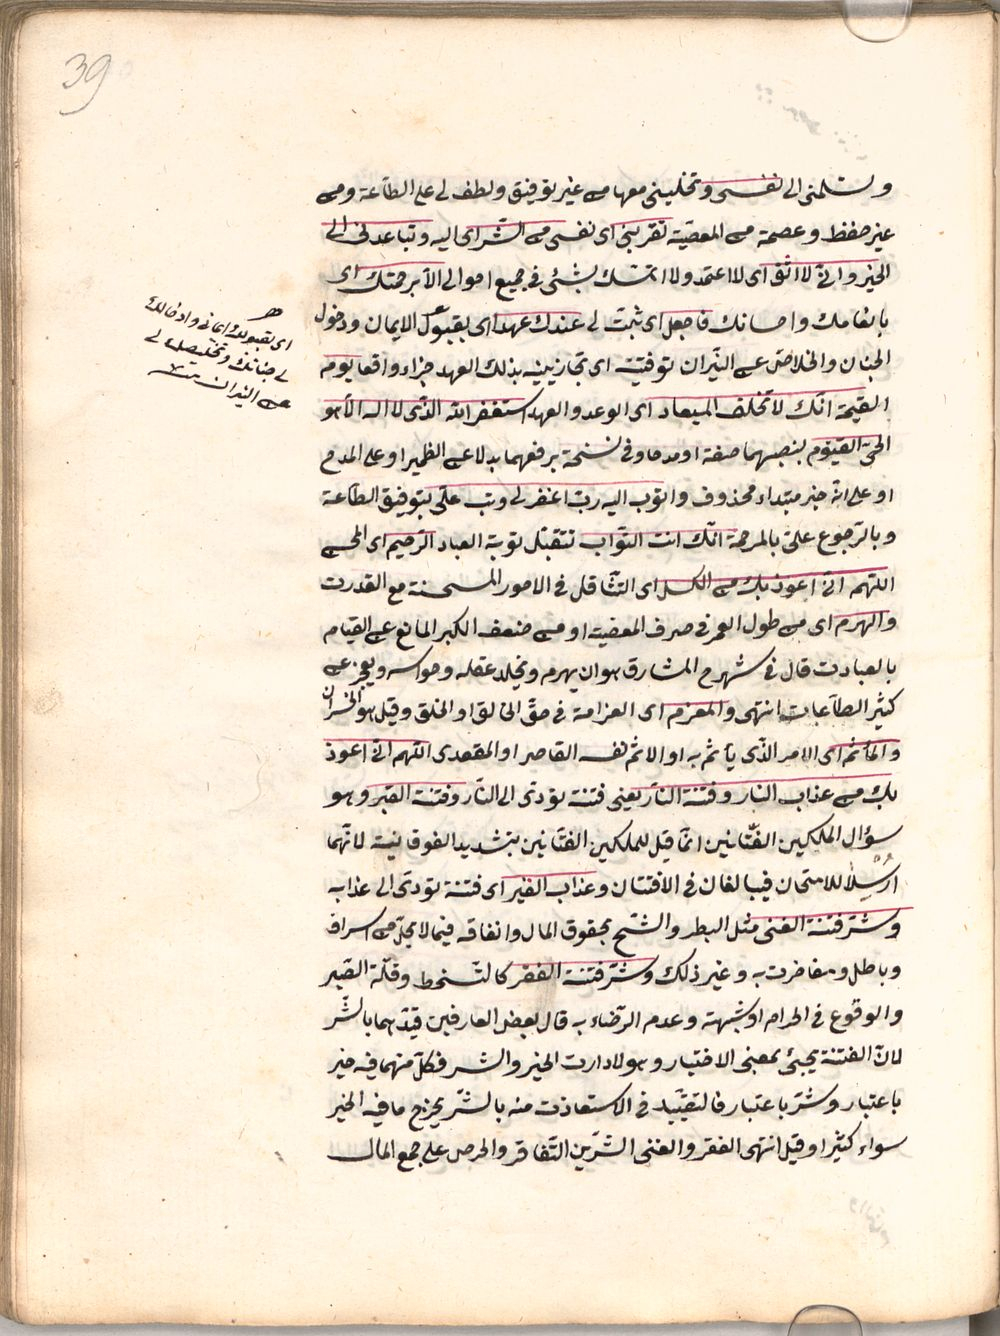 39
وتسلمنى الى نفسى وتخلينى معها من غير توفيق ولطف لى على الطاعة ومن
غير حفظ وعصمة من المعصية تقربنى اى نفسى من الشر اى اليه وتباعدنى الى
الخير وانى لا اثق اى لا اعتمد ولا اتمسك بشئ فى جميع احوالى الا برحمتك اى
بانعامك واحسانك فاجعل اى ثبت لى عندك عهدا اى بقبولك الايمان ودخول
الجنان والخلاص عن النيران توفينيه اى تجازينيه بذلك العهد جزاء واقعا يوم
القيمة انك لا تخلف الميعاد اى الوعد والعهد استغفر الله الذى لا اله الا هو
الحى القيوم بنصبهما صفة او مدحا وفى نسخة برفعهما بدلا عن الضمير او على المدح
او على انه خبر مبتداء محذوف واتوب اليه رب اغفر لى وتب على بتوفيق الطاعة
وبالرجوع على بالمرحمة انك انت التواب تتقبل توبة العباد الرحيم اى
اللهم انى اعوذ بك من الكسل اى التثاقل فى الامور المستحسنة مع القدرت
والهرم اى من طول العمر فى صرف المعصية او من ضعف الكبر المانع عن القيام
بالعبادت قال فى شرح المشارق هو ان يهرم ويختل عقله وحواسه ويعجز عن
كثير الطاعات انتهى والمغرم اى الغرامة فى حق الخالق او الخلق وقيل هو الخسران
والمأثم اى الامر الذى يأثم به او الاثم نفسه القاصر او المتعدى اللهم انى اعوذ
بك من عذاب النار وفتنة النار يعنى فتنة تؤدى الى النار وفتنة القبر وهو
سؤال الملكين الفتانين انما قيل للملكين الفتانين بتشديد الفوقانية لانهما
ارسلا للامتحان فيبالغان فى الافتتان وعذاب القبر اى فتنة تؤدى الى عذابه
وشر فتنة الغنى مثل البطر والشح بحقوق المال وانفاقه فيما لا يحل من اسراف
وباطل ومفاخرت به وغير ذلك وشر فتنة الفقر كالتسخط وقلة الصبر
والوقوع فى الحرام او شبهته وعدم الرضاء به قال بعض العارفين قيدهما بالشر
لان الفتنة يجئ بمعنى الاختبار وهو لادارت الخير والشر فكل منهما فيه خير
باعتبار وشر باعتبار فالتقييد فى الاستعاذت منه بالشر يخرج ما فيه الخير
سواء كثير او قيل انتهى الفقر والغنى الشرين التفاقر والحرص على جمع المال
اى بقبولك ايمانى وادخالك
لى جنانك وتخليصك لى
عن النيران منه